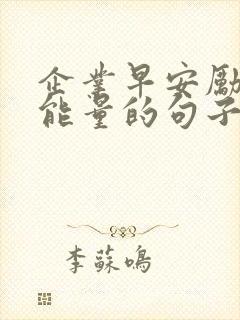 企業早安勵
能量的句子
李蘇鳴